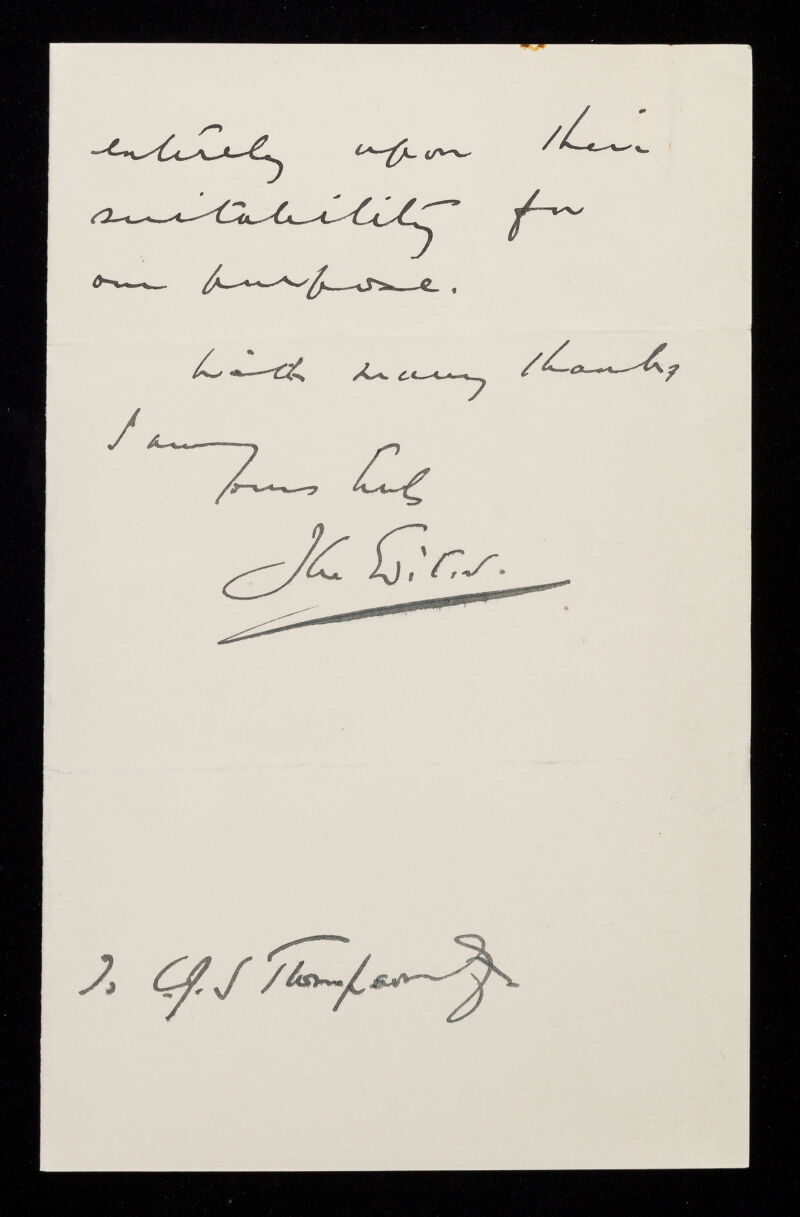 entirely upon their
suitability for
our purpose.
With many thanks
I am
Yours truly
The Editor.
To C.J.S Thompson Esq